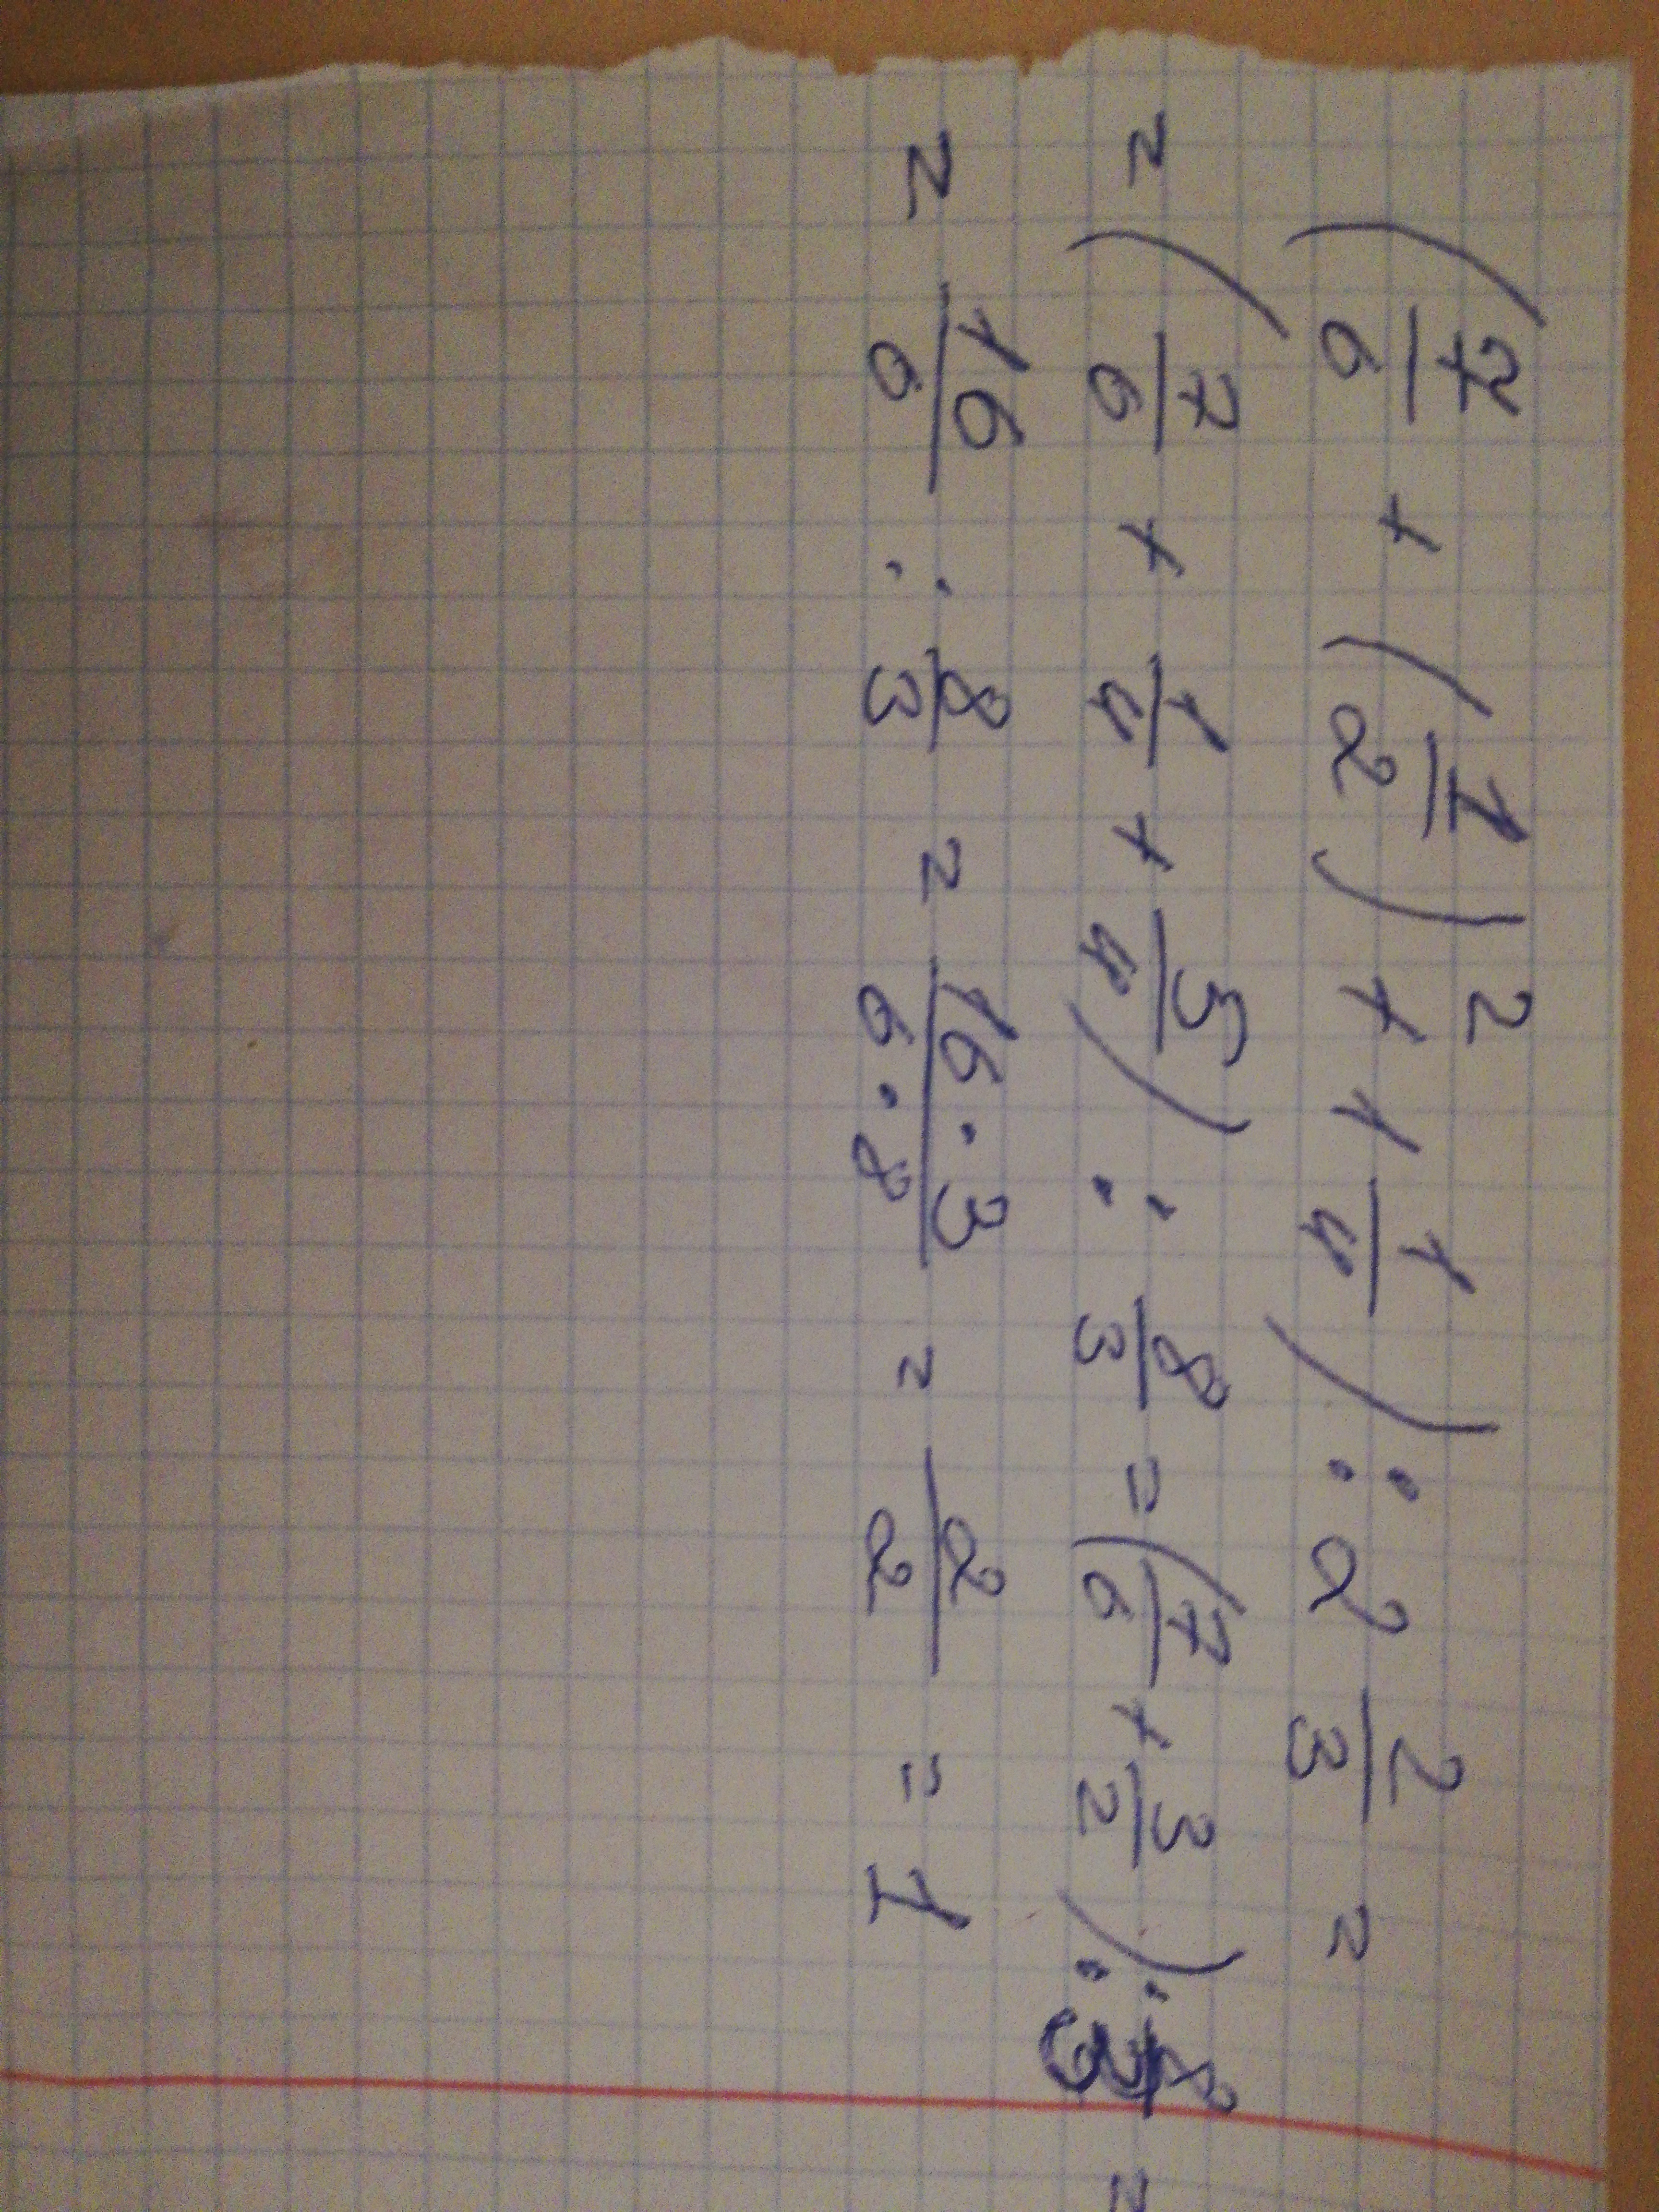 (7/6 + (1/2)² + 1 1/4) : 2 2/3 =
= (7/6 + 1/4 + 5/4) : 8/3 = (7/6 + 3/2) : 8/3 =
= 16/6 : 8/3 = 16·3/6·8 = 2/2 = 1